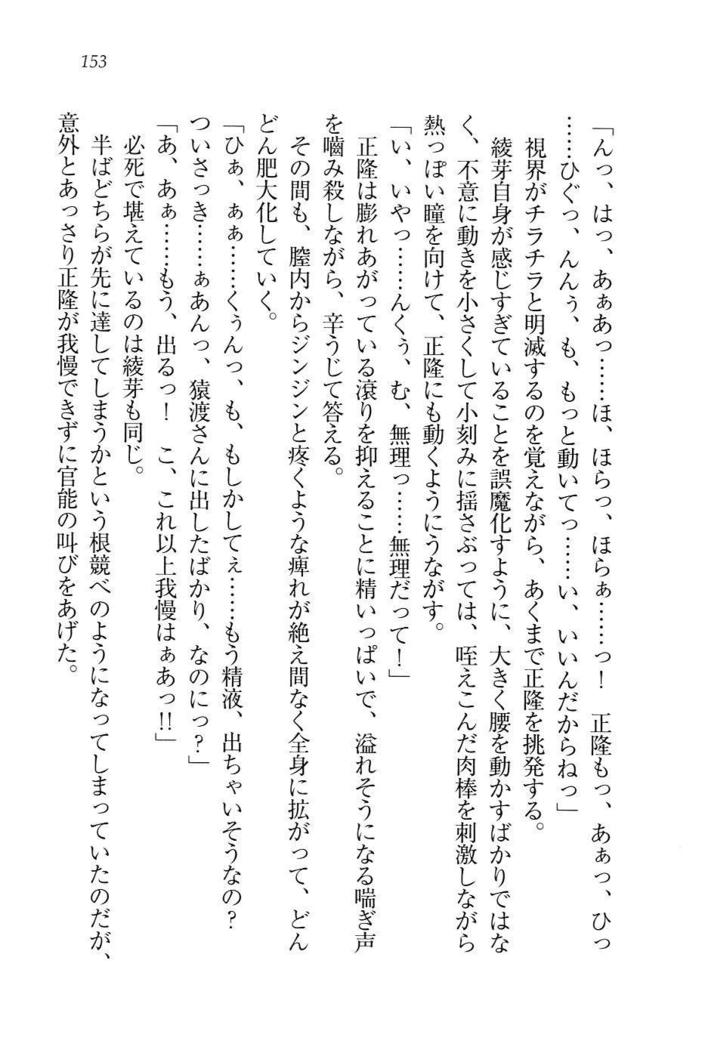 153
「んっ、はっ、あぁあっ……ほ、ほらっ、ほらぁ……っ！　正隆もっ、あぁっ、ひっ
……ひぐっ、んんぅ、も、もっと動いてっ……い、いいんだからねっ」
視界がチラチラと明滅するのを覚えながら、あくまで正隆を挑発する。
綾芽自身が感じすぎていることを誤魔化すように、大きく腰を動かすばかりではな
く、不意に動きを小さくして小刻みに揺さぶっては、咥えこんだ肉棒を刺激しながら
熱っぽい瞳を向けて、正隆にも動くようにうながす。
「い、いやっ……んくぅ、む、無理っ……無理だって！」
正隆は膨れあがっている滾りを抑えることに精いっぱいで、溢れそうになる喘ぎ声
を嚙み殺しながら、辛うじて答える。
その間も、膣内からジンジンと疼くような痺れが絶え間なく全身に拡がって、どん
どん肥大化していく。
「ひぁ、ぁぁ……くぅんっ、も、もしかしてぇ……もう精液、出ちゃいそうなの？
ついさっき……ぁあんっ、猿渡さんに出したばかり、なのにっ？」
「あ、あぁ……もう、出るっ！　こ、これ以上我慢はぁあっ!!」
必死で堪えているのは綾芽も同じ。
半ばどちらが先に達してしまうかという根競べのようになってしまっていたのだが、
意外とあっさり正隆が我慢できずに官能の叫びをあげた。